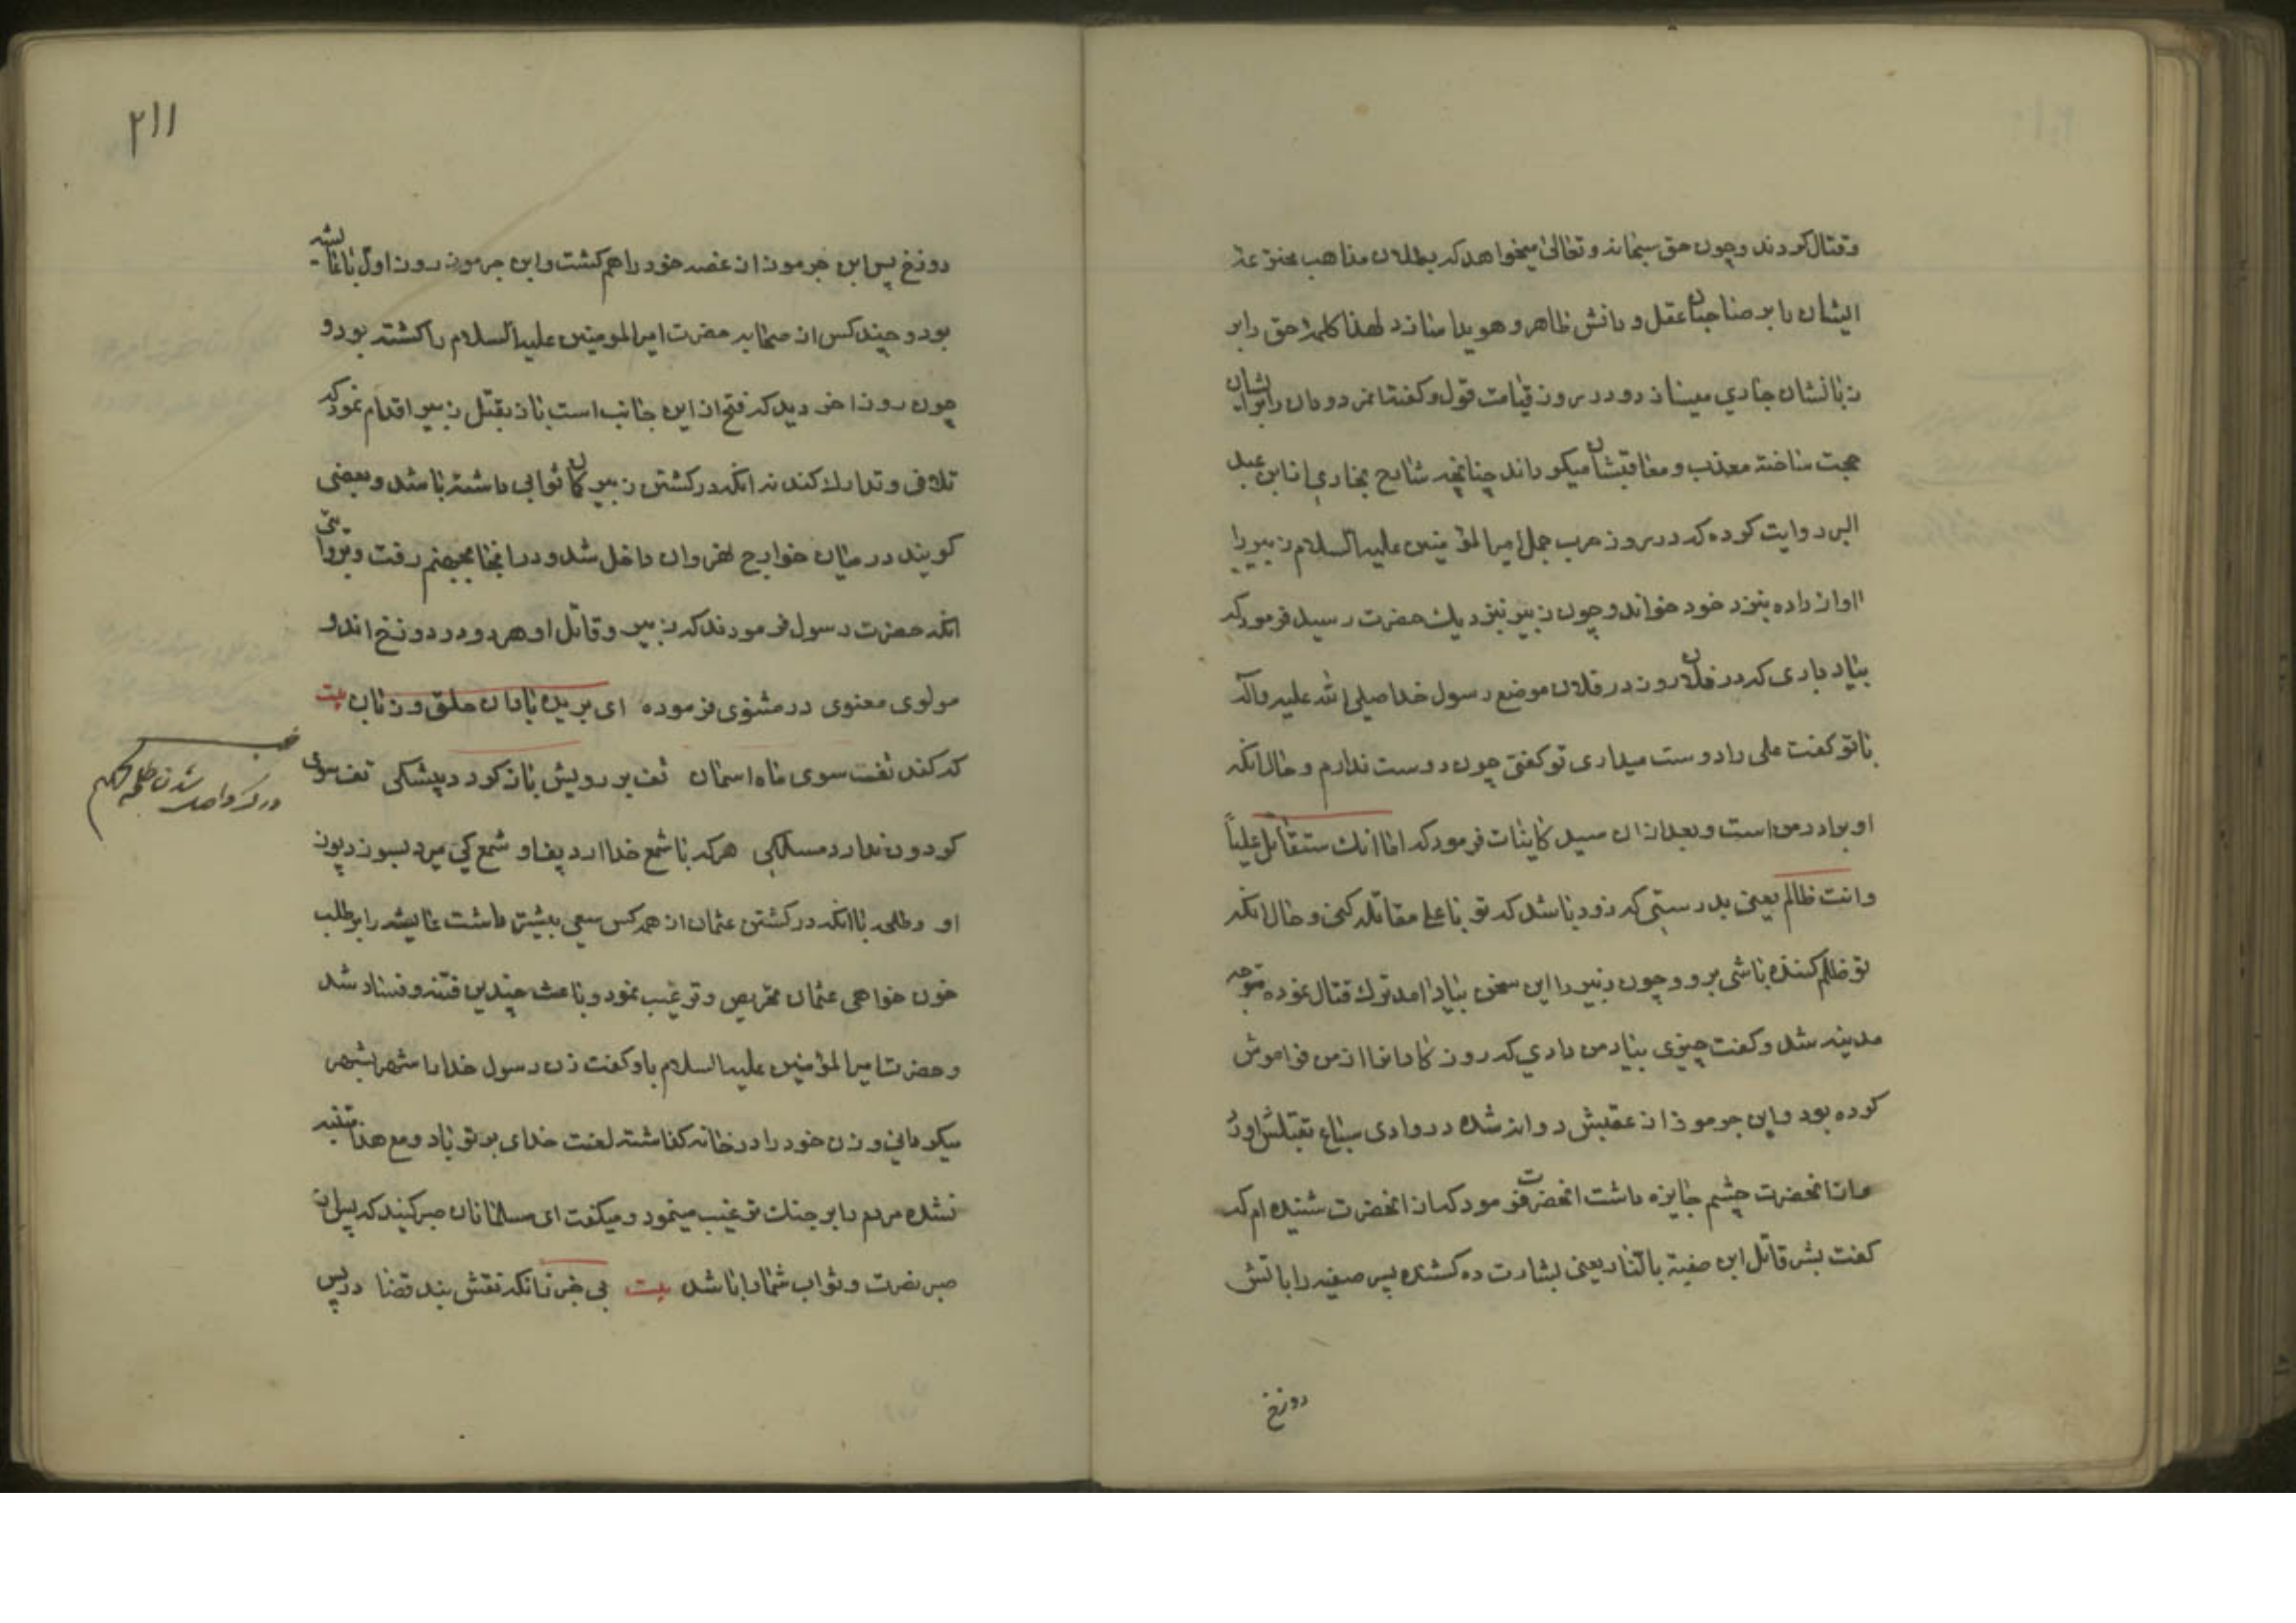 وقتال کردند وچون حق سبحانه وتعالی میخواهد که بطلان مذاهب مخترعه
ایشان را بر صاحبان عقل و دانش ظاهر و هویدا سازد لهذا کلمهٔ حق را بر
زبانشان جاری میسازد و در روز قیامت قول و کفتار مزدوران را برایشان
حجت ساخته معذب و معاقبشان میکرداند چنانچه شارح بخاری از ابن عبد
البر روایت کرده که در روز حرب جمل امیر المؤمنین علیه السلام زبیر را
اواز داده بنزد خود خواند و چون زبیر بنزدیک حضرت رسید فرمود که
بیاد داری که در فلان روز در فلان موضع رسول خدا صلی الله علیه وآله
باتو کفت علی را دوست میداری تو کفتی چون دوست ندارم و حال انکه
او برادر من است و بعد از ان سید کاینات فرمود که اما انک ستقاتل علیاً
وانت ظالم یعنی بدرستی که زود باشد که تو با علی مقاتله کنی و حال انکه
تو ظلم کننده باشی بر او و چون زبیر را این سخن بیاد امد ترک قتال نموده متوجه
مدینه شد و کفت چیزی بیاد من دادی که روزکار انرا از من فراموش
کرده بود و ابن جرموز از عقبش روانه شده در وادی سباع بقتلش اورد
و از انحضرت چشم جایزه داشت انحضرت فرمود که از انحضرت شنیده ام که
کفت بشر قاتل ابن صفیة بالنار یعنی بشارت ده کشنده پسر صفیه را باتش
دوزخ
۲۱۱
دوزخ پس ابن جرموز از غصه خود را هم کشت و ابن جرموز روز اول با عایشه
بود و چند کس از صحابه حضرت امیر المومنین علیه السلام را کشته بود و
چون روز اخر دید که فتح از این جانب است باز بقتل زبیر اقدام نمود که
تلافی و تدارک کند نه انکه در کشتن زبیر کمان ثوابی داشته باشد و بعضی
کویند در میان خوارج نهروان داخل شد و در انجا بجهنم رفت و بروایتی
انکه حضرت رسول فرمودند که زبیر و قاتل او هر دو در دوزخ اند و
مولوی معنوی در مثنوی فرموده ای بریده بادان حلق و زبان بیت
که کند تفت سوی ماه اسمان تف بر رویش باز کردد بیشکی تف سوی
کردون ندارد مسلکی هر که با شمع خدا ارد پف او شمع کی میرد بسوزد پوز
او و طلحه با انکه در کشتن عثمان از همه کس سعی بیشتر داشت عایشه را بر طلب
خون خواهی عثمان تحریص و ترغیب نمود و باعث چندین فتنه و فساد شد
و حضرت امیر المؤمنین علیه السلام باو کفت زن رسول خدا را شهر بشهر
میکردانی و زن خود را در خانه کذاشته لعنت خدای بر تو باد و مع هذا متنبه
نشده مردم را بر جنک ترغیب مینمود و میکفت ای مسلمانان صبر کنید که پس از
صبر نصرت و ثواب شما را باشد بیت بی خبر زانکه نقش بند قضا در پس
در ذکر واصل شدن طلحه بجهنم